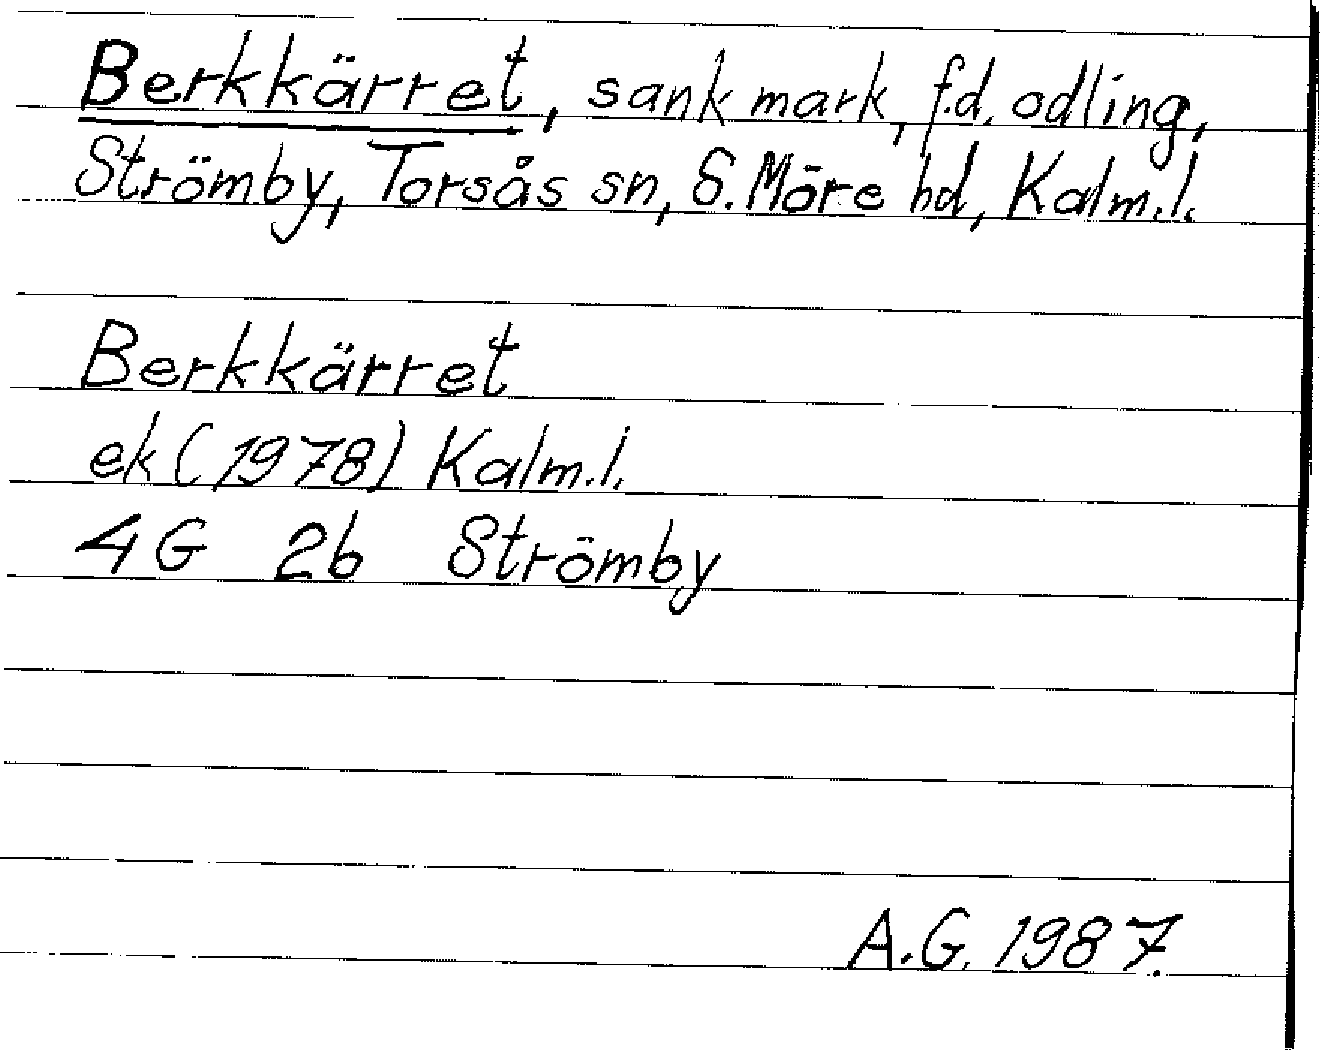 Berkkärret, sank mark, f.d. odling,
Strömby, Torsås sn, S. Möre hd, Kalm.l.
Berkkärret
ek (1978) Kalm.l.
4G 2b Strömby
A.G. 1987.